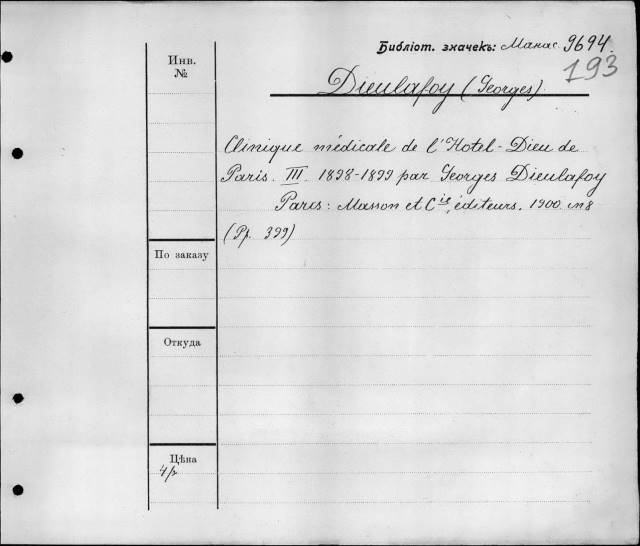 Библіот. значекъ: Манас. 9694.
193
Инв.
№
Dieulafoy (Georges)
Clinique médicale de l'Hotel-Dieu de
Paris. III 1898-1899 par Georges Dieulafoy
Paris: Masson et Cie, éditeurs. 1900 in 8
(Pp. 399)
По заказу
Откуда
Цѣна
4 р